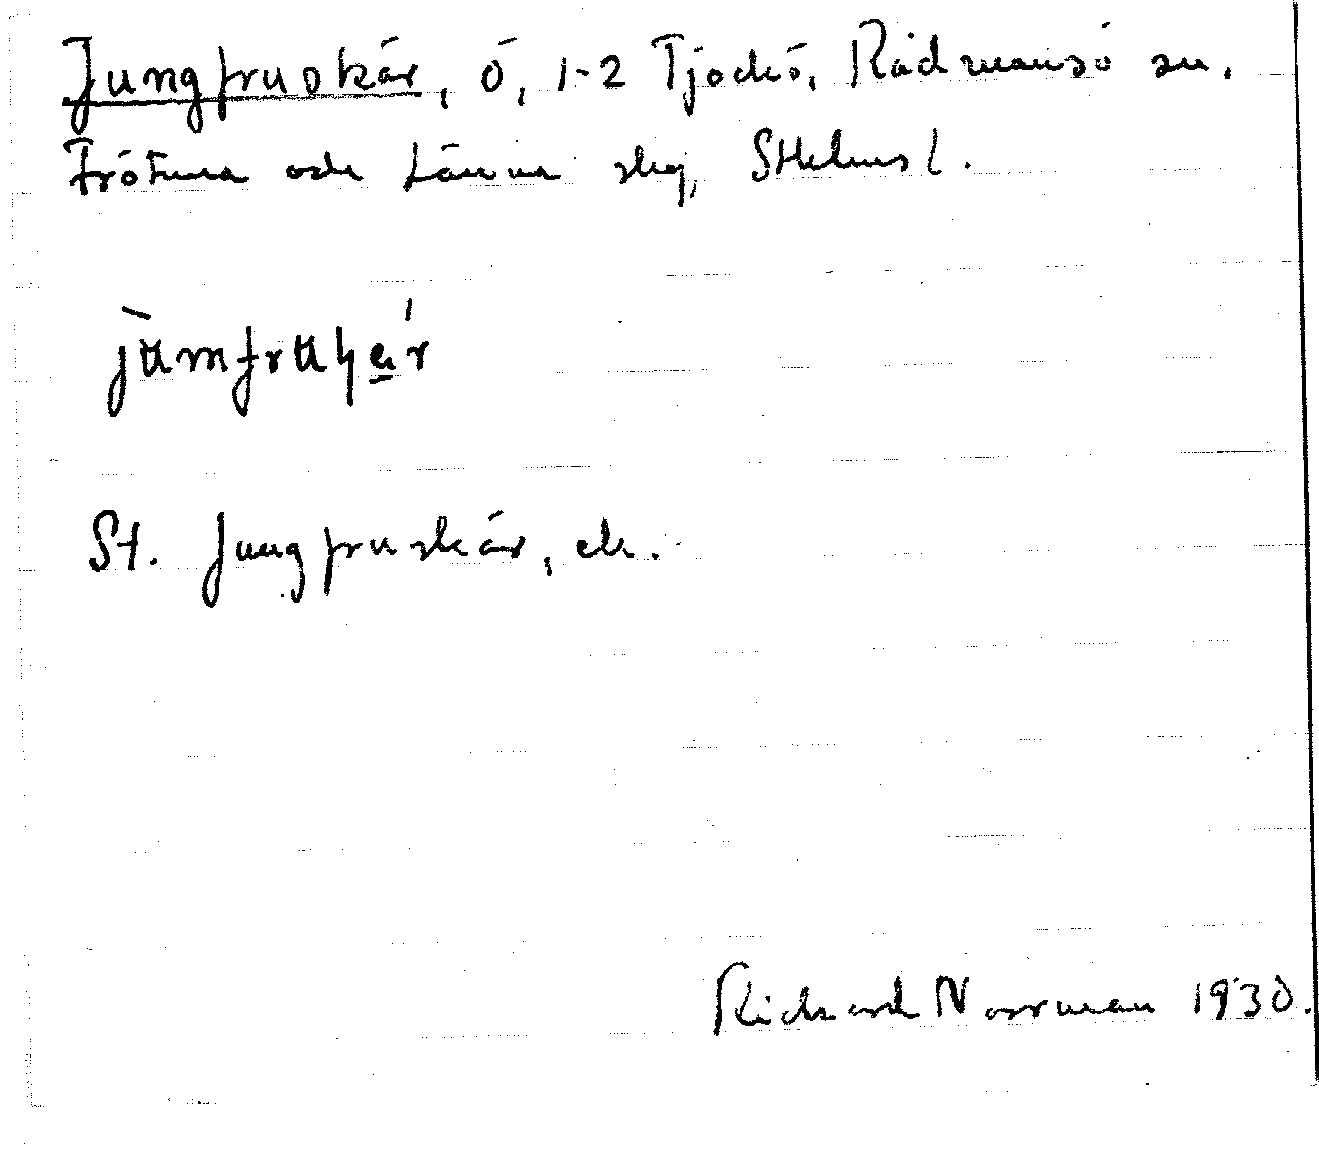 Jungfruskär, Ö, 1-2 Tjockö, Rådmansö sn,
Frötuna och Länna skg, Sthlms l.
St. Jungfruskär, ek.
Richard Norrman 1930.